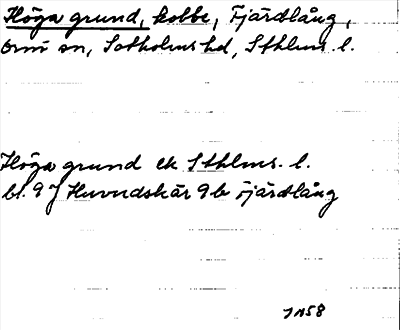 Höga grund, kobbe, Fjärdlång,
Ornö sn, Sotholms hd, Sthlms l.
Höga grund ek Sthlms. l.
bl. 9J Huvudskär 9b Fjärdlång
JN58